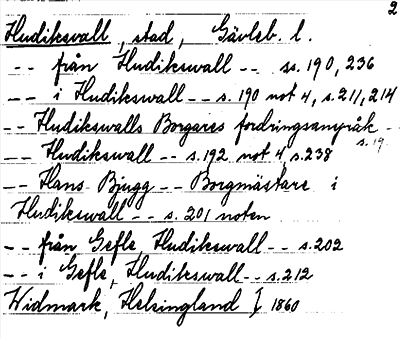 2
Hudikswall, stad, Gävleb. l.
-- från Hudikswall -- ss. 190, 236
-- i Hudikswall -- s. 190 not 4, s. 211, 214
-- Hudikswalls Borgares fordringsanspråk --
s. 19
-- Hudikswall -- s. 192 not 4, s. 238
-- Hans Bjugg -- Borgmästare i
Hudikswall -- s. 201 noten
-- från Gefle, Hudikswall -- s. 202
-- i Gefle, Hudikswall -- s. 212
Widmark, Helsingland I, 1860